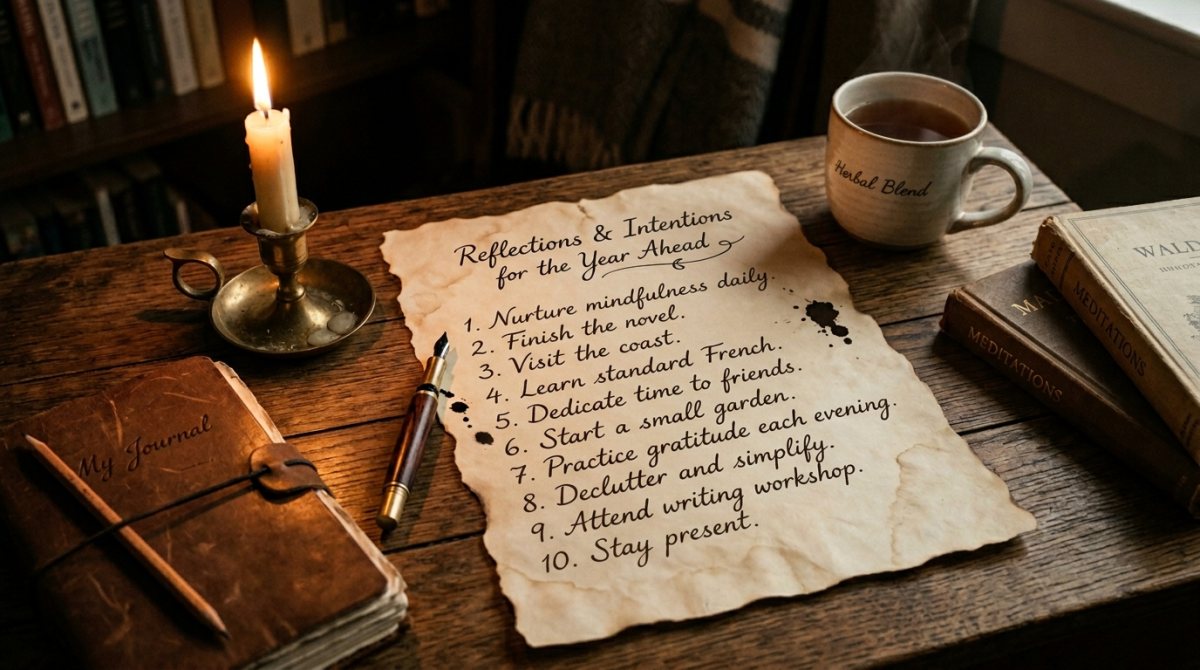 Reflections & Intentions
for the Year Ahead
1. Nurture mindfulness daily.
2. Finish the novel.
3. Visit the coast.
4. Learn standard French.
5. Dedicate time to friends.
6. Start a small garden.
7. Practice gratitude each evening.
8. Declutter and simplify.
9. Attend writing workshop.
10. Stay present.
My Journal
Herbal Blend
MEDITATIONS
MEDITATIONS